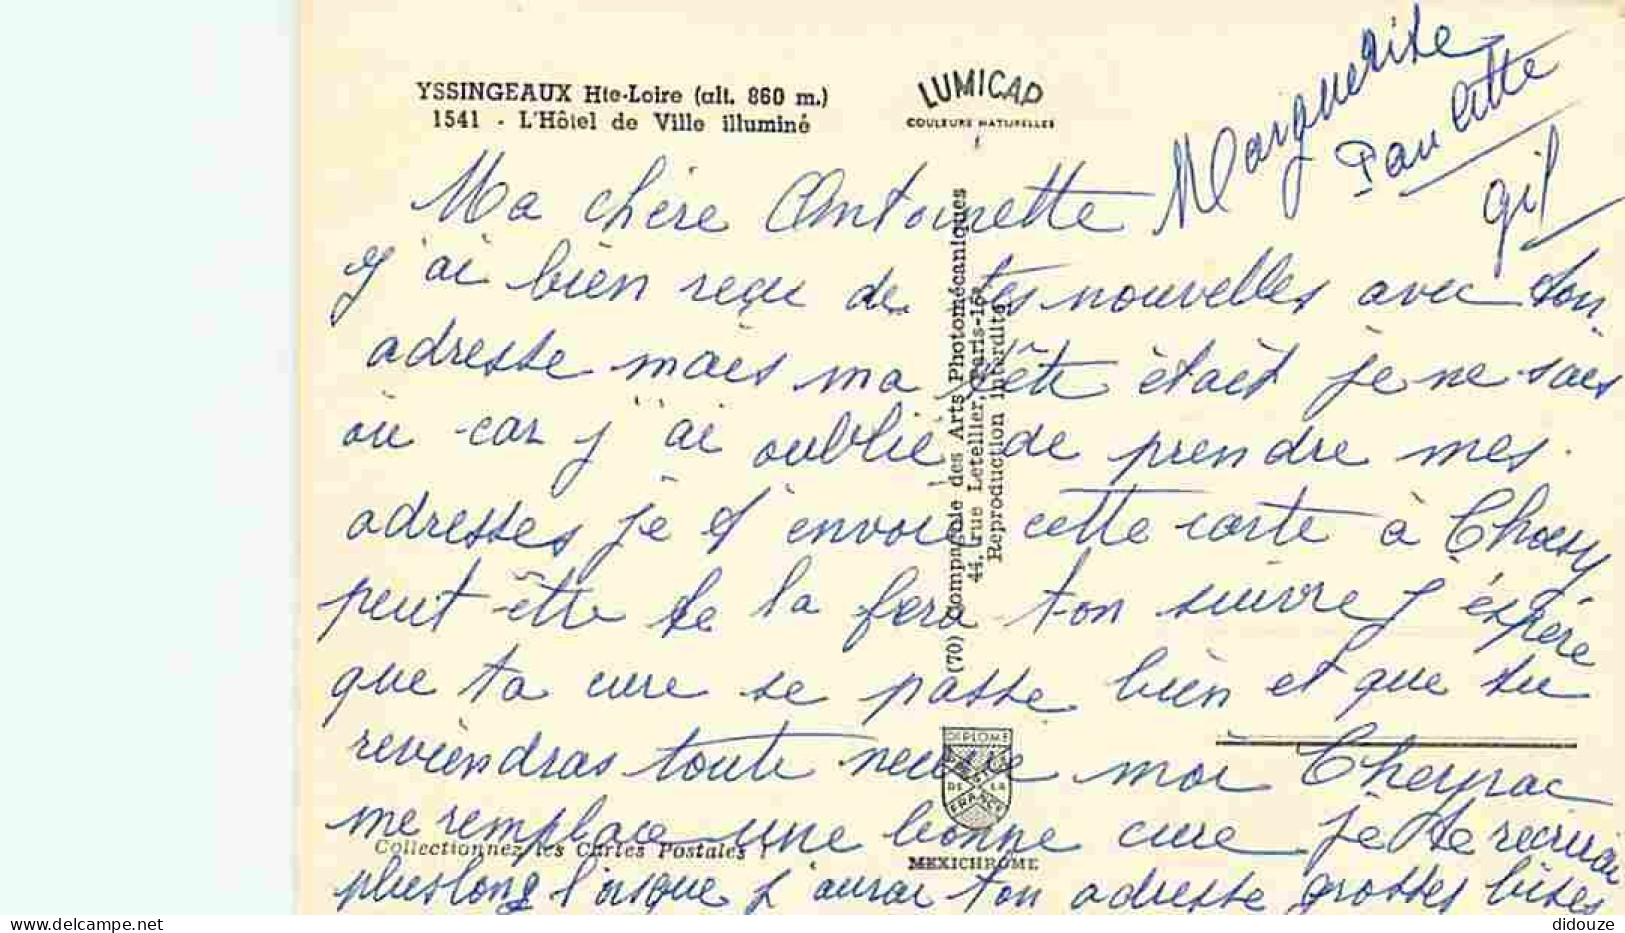 YSSINGEAUX Hte-Loire (alt. 860 m.)
1541 - L'Hôtel de Ville illuminé
LUMICAP
COULEURS NATURELLES
Marguerite
Paulette
gil
Ma chère Antoinette
J'ai bien reçu de tes nouvelles avec ton
adresse mais ma tête étais je ne sais
où car j'ai oublié de prendre mes
adresses je t'envoie cette carte à Choisy
peut être te la fera t-on suivre j'éspère
que ta cure se passe bien et que tu
reviendras toute neuve moi Cheyrac
me remplace une bonne cure je te récrirai
plus long lorsque j'aurai ton adresse grosses bises
(70) Compagnie des Arts Photomécaniques
44, rue Letellier, Paris-15e
Reproduction interdite
DIPLOME
DE LA
FRANCE
MEXICHROME
Collectionnez les Cartes Postales !
delcampe.net
didouze